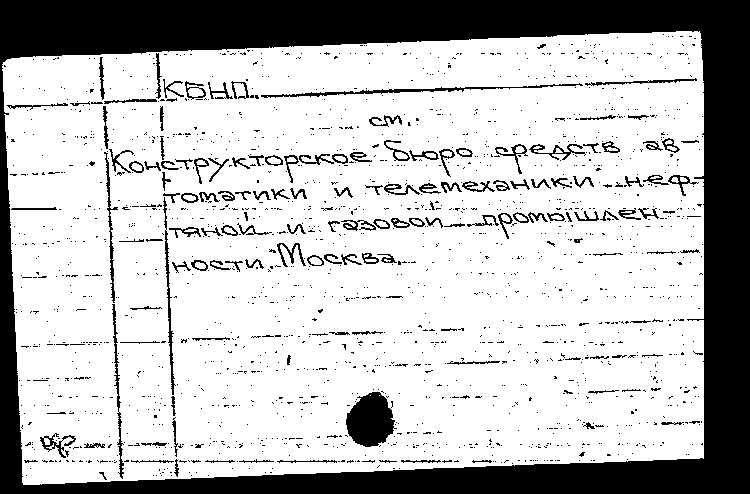 КБНП
см.
Конструкторское бюро средств ав-
томатики и телемеханики неф-
тяной и газовой промышлен-
ности. Москва.